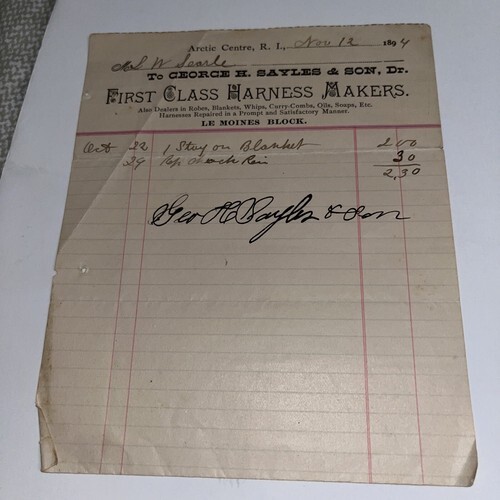 Arctic Centre, R. I., Nov 12 1894
W Searle
To GEORGE H. SAYLES & SON, Dr.
FIRST CLASS HARNESS MAKERS.
Also Dealers in Robes, Blankets, Whips, Curry-Combs, Oils, Soaps, Etc.
Harnesses Repaired in a Prompt and Satisfactory Manner.
LE MOINES BLOCK.
Oct 22 1 Stay on Blanket 2 00
29 Rep Check Rein 30
2,30
Geo H Sayles & Son